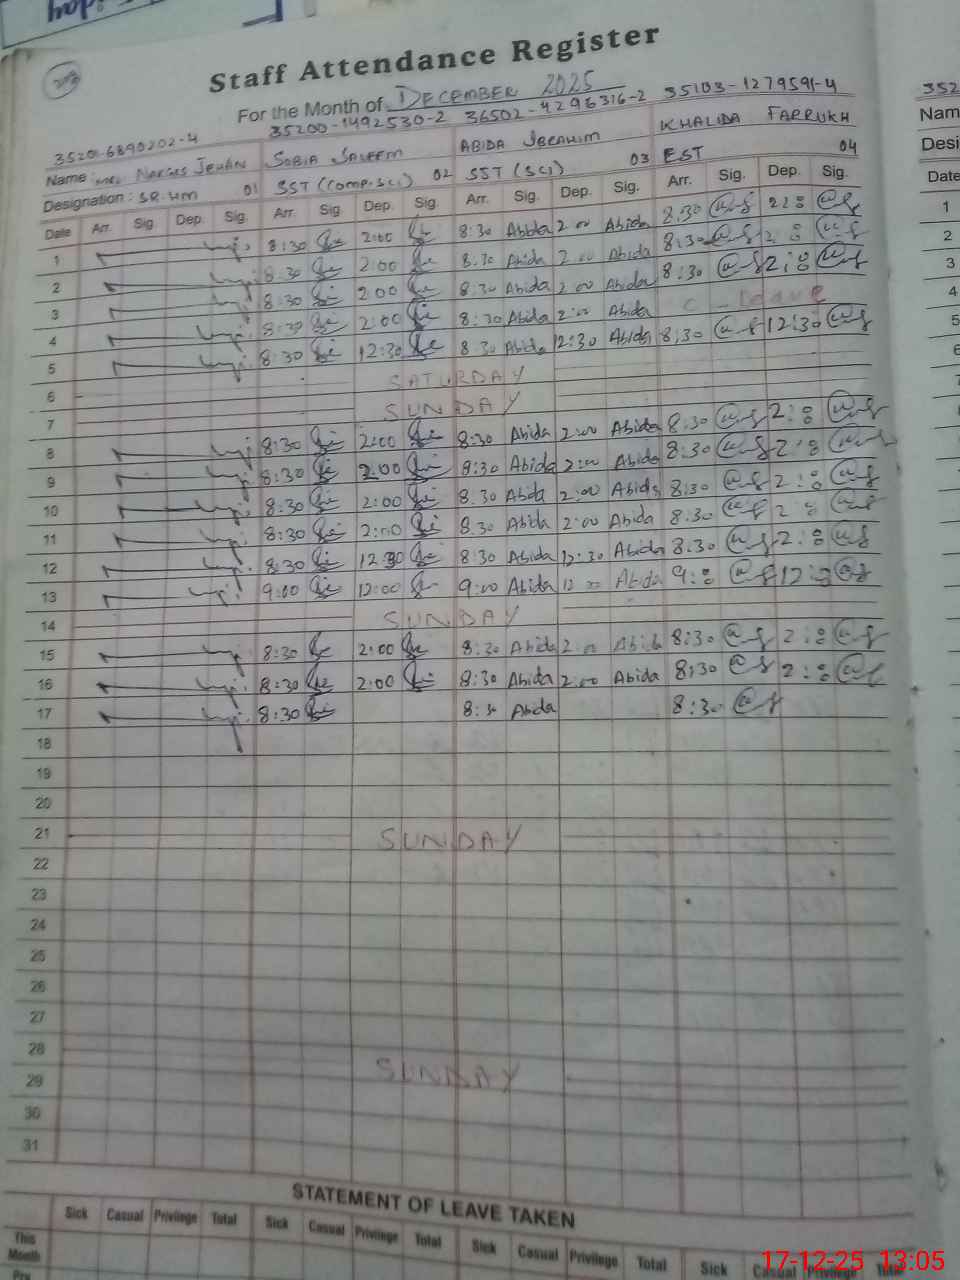 Staff Attendance Register
For the Month of DECEMBER 2025
35201-6890202-4 35200-1492530-2 36502-4296316-2 35103-1279591-4
Name: Mrs. Narges Jehan SOBIA SALEEM ABIDA IBRAHIM KHALIDA FARRUKH
Designation: SR.HM 01 SST (Comp.sci) 02 SST (Sci) 03 EST 04
Date Arr. Sig. Dep. Sig. Arr. Sig. Dep. Sig. Arr. Sig. Dep. Sig. Arr. Sig. Dep. Sig.
1 8:30 2:00 8:30 Abida 2:00 Abida 8:30 2:00
2 8:30 2:00 8:30 Abida 2:00 Abida 8:30 2:00
3 8:30 2:00 8:30 Abida 2:00 Abida 8:30 2:00
4 8:30 2:00 8:30 Abida 2:00 Abida C. leave
5 8:30 12:30 8:30 Abida 12:30 Abida 8:30 12:30
6 SATURDAY
7 SUNDAY
8 8:30 2:00 8:30 Abida 2:00 Abida 8:30 2:00
9 8:30 2:00 8:30 Abida 2:00 Abida 8:30 2:00
10 8:30 2:00 8:30 Abida 2:00 Abida 8:30 2:00
11 8:30 2:00 8:30 Abida 2:00 Abida 8:30 2:00
12 8:30 12:30 8:30 Abida 12:30 Abida 8:30 2:00
13 9:00 12:00 9:00 Abida 12:00 Abida 9:00 12:00
14 SUNDAY
15 8:30 2:00 8:30 Abida 2:00 Abida 8:30 2:00
16 8:30 2:00 8:30 Abida 2:00 Abida 8:30 2:00
17 8:30 8:30 Abida 8:30
18
19
20
21 SUNDAY
22
23
24
25
26
27
28 SUNDAY
29
30
31
STATEMENT OF LEAVE TAKEN
Sick Casual Privilege Total Sick Casual Privilege Total Sick Casual Privilege Total Sick Casual Privilege Total
This Month
17-12-25 13:05